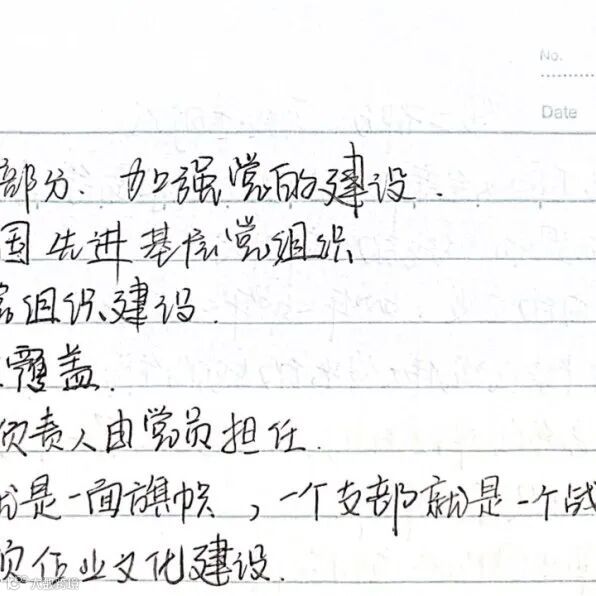 No.
Date
部分. 加强党的建设.
国先进基层党组织
组织建设.
覆盖.
负责人由党员担任.
就是一面旗帜，一个支部就是一个战
企业文化建设.
大